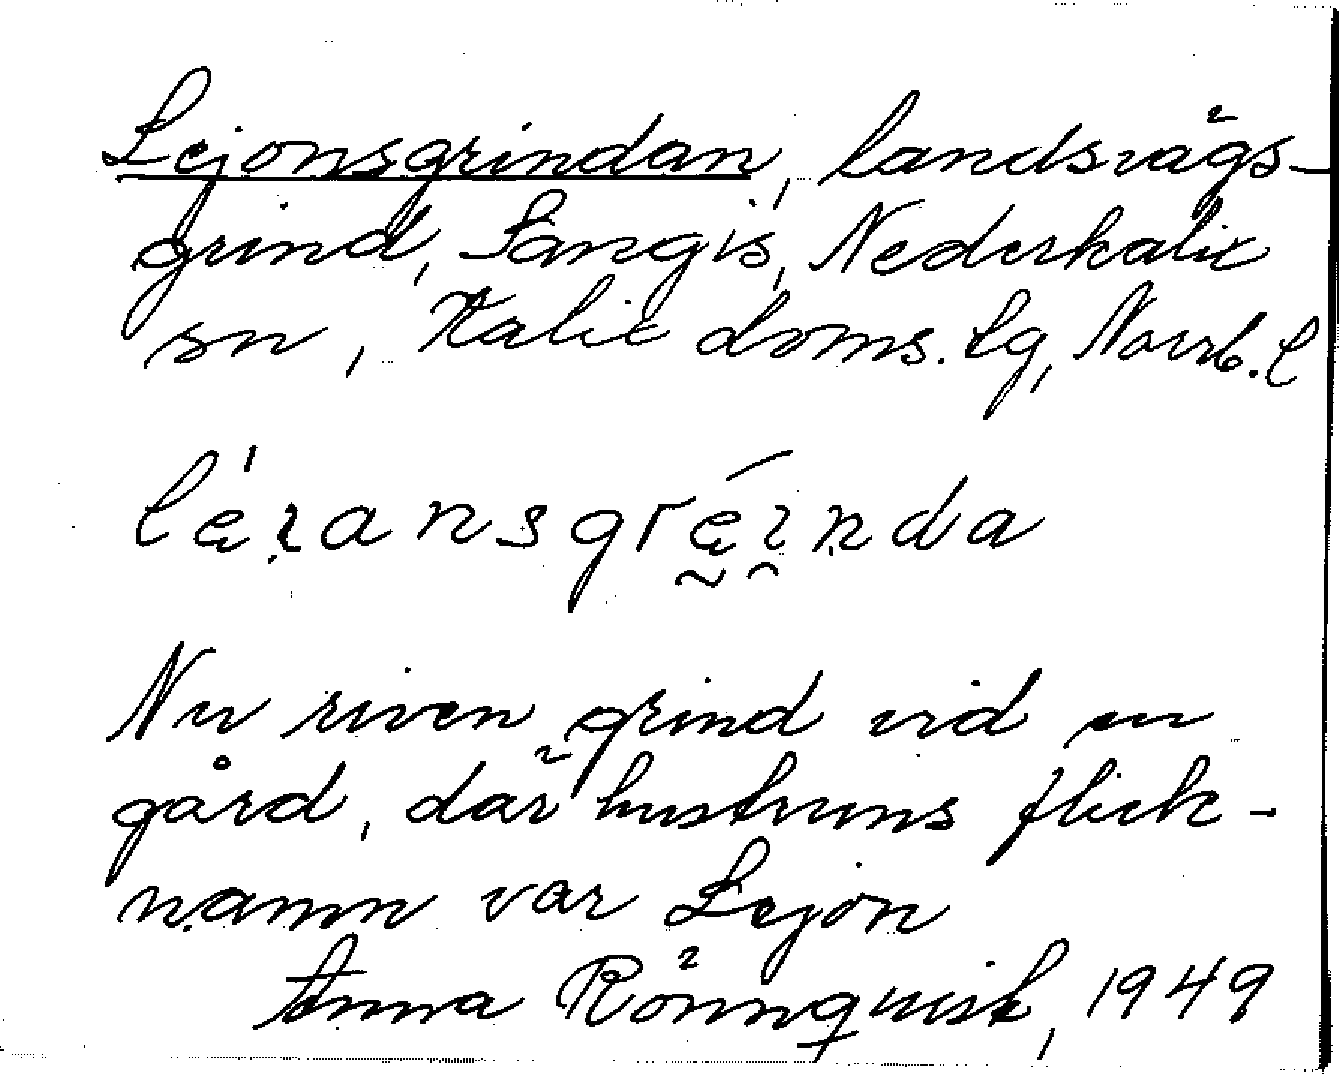 Lejonsgrindan, landsvägs-
grind, Sangis, Nederkalix
sn, Kalix doms. lg, Norrb. l
Nu riven grind vid en
gård, där hustruns flick-
namn var Lejon
Anna Rönnquist, 1949